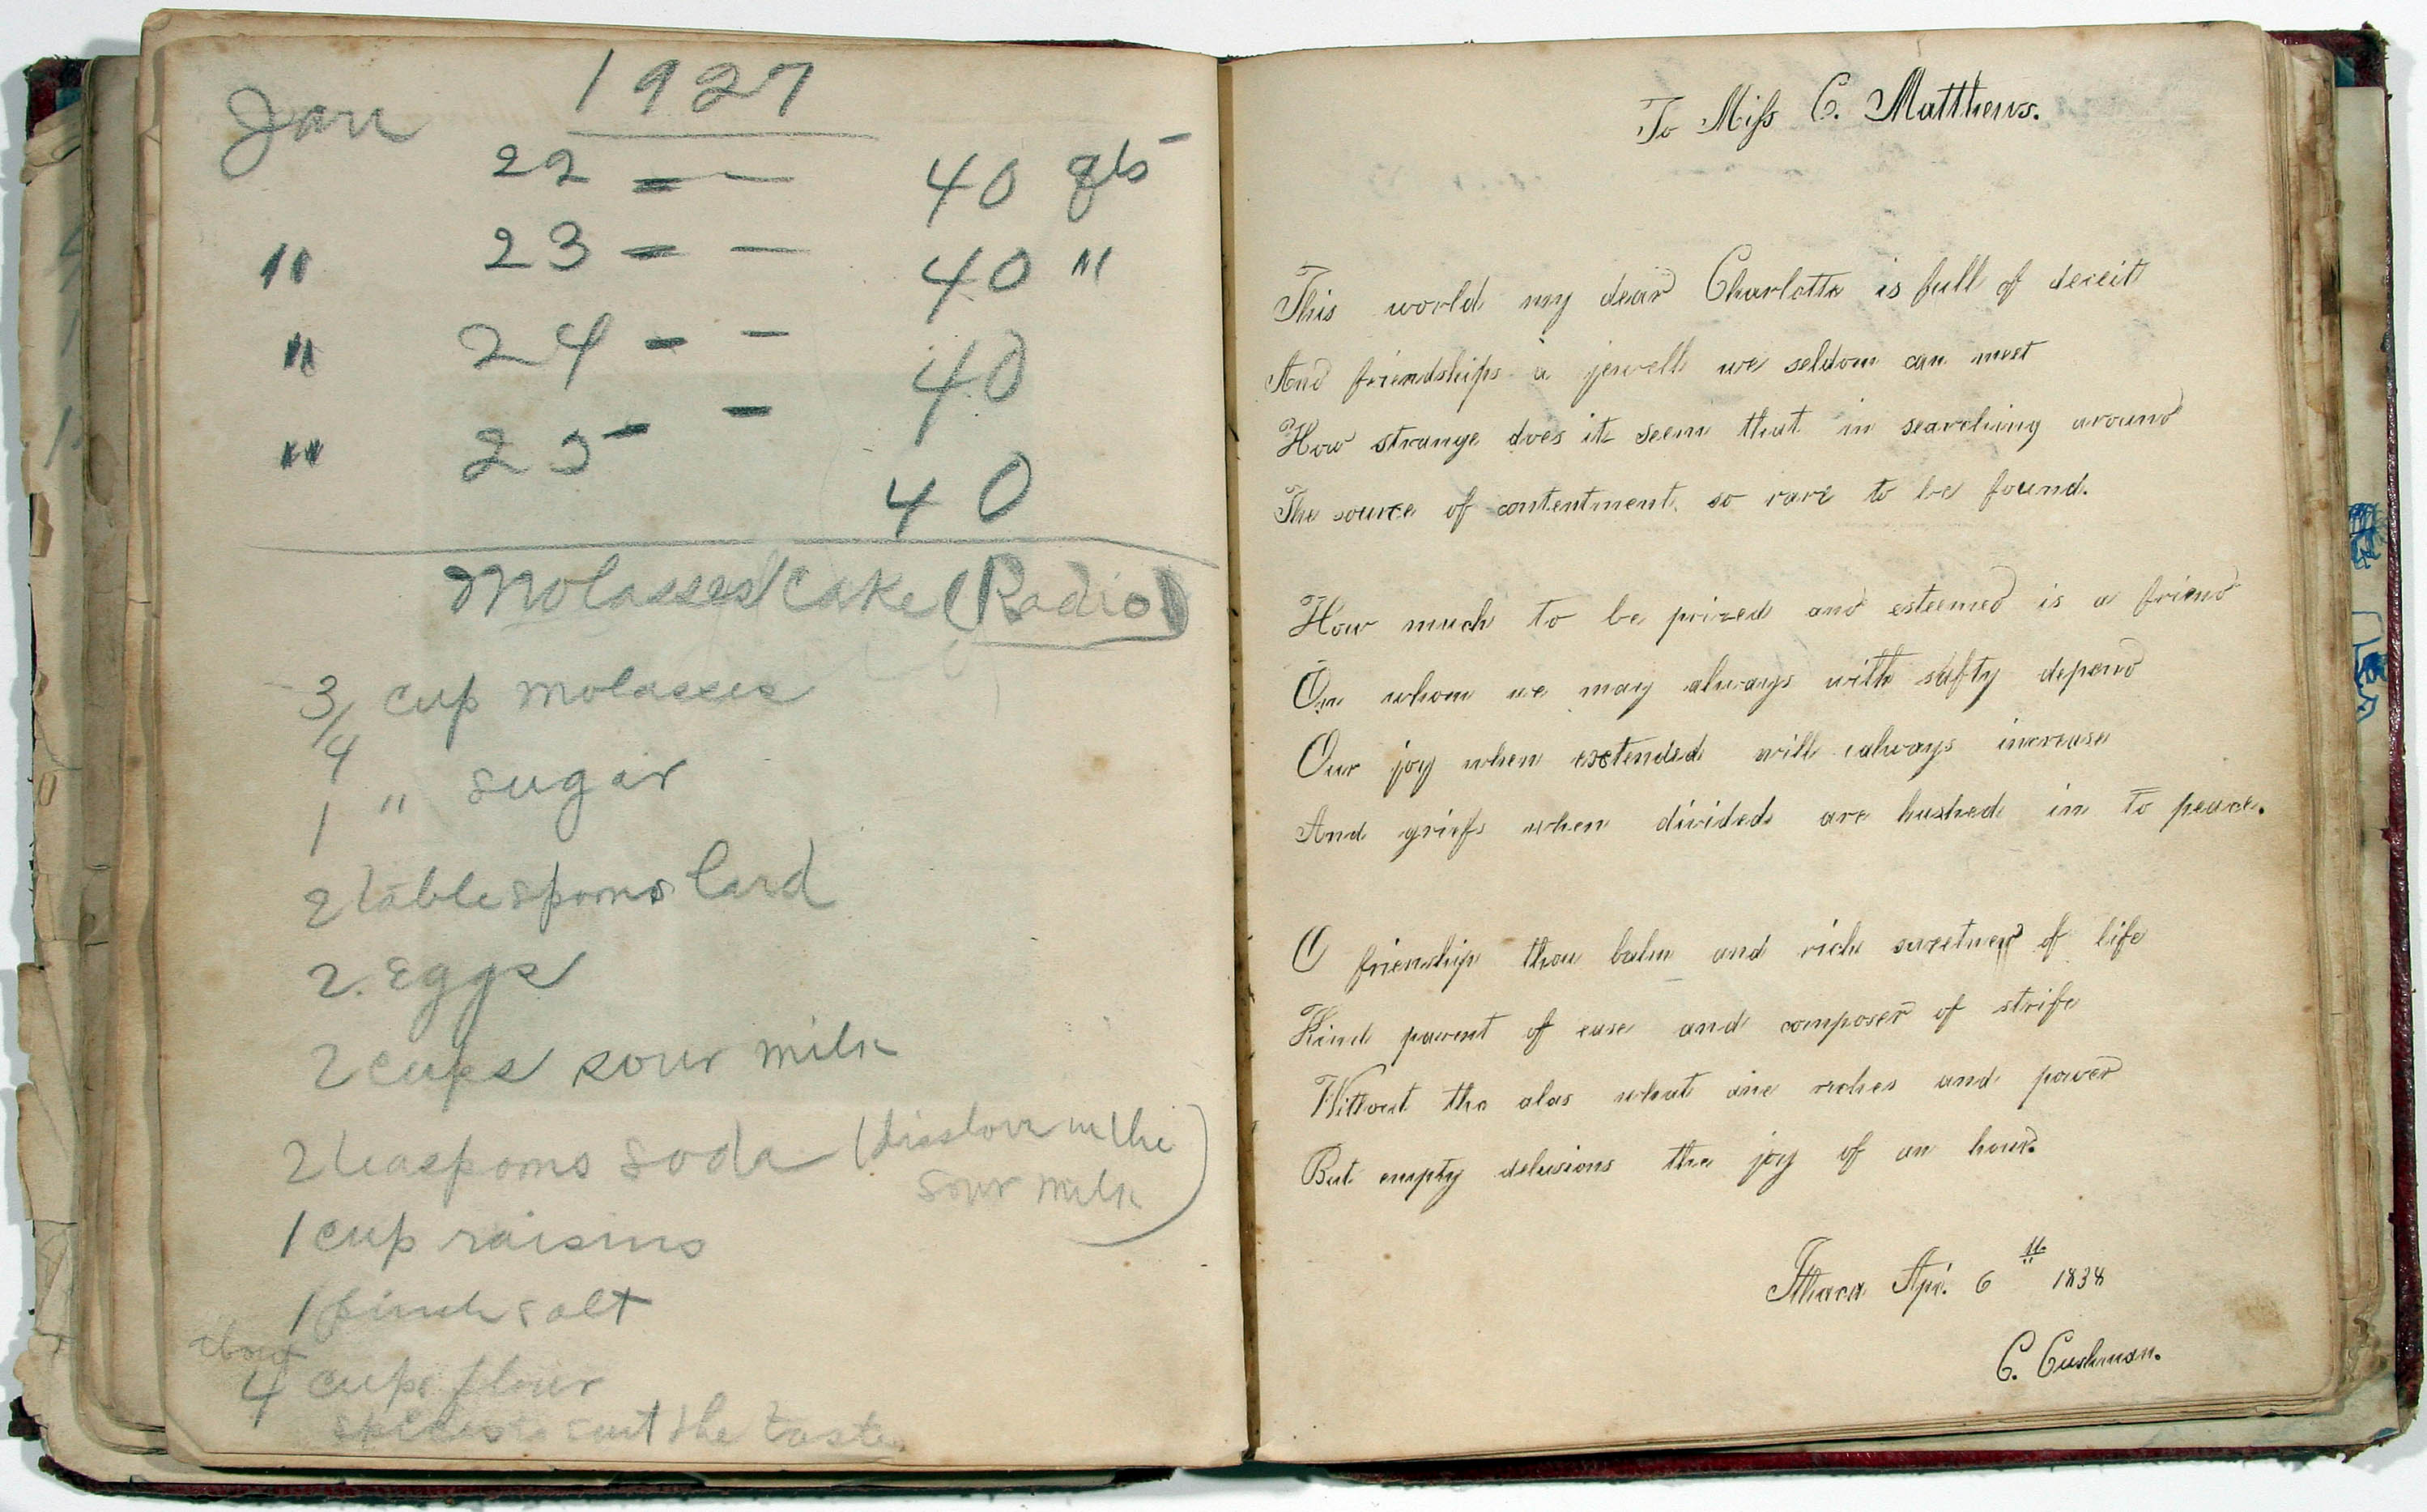 1927
Jan 22 = — 40 qts
" 23 = — 40 "
" 24 - - 40
" 25 - - 40
Molasses Cake (Radio)
3/4 cup molasses
1 " sugar
2 tablespoons lard
2. Eggs
2 cups sour milk
2 teaspoons soda (disslove in the
sour milk)
1 cup raisins
1 pinch salt
about
4 cups flour
spices to suit the taste
To Miss C. Matthews.
This world my dear Charlotte is full of deceit
And friendships a jewell we seldom can meet
How strange does it seem that in searching around
The source of contentment, so rare to be found.
How much to be prized and esteemed is a friend
On whom we may always with safty depend
Our joy when extended will always increase
And griefs when divided are hushed in to peace.
O frienship thou balm and rich sweetness of life
Kind parent of ease and composer of strife
Without the alas what are riches and power
But empty delusions the joy of an hour.
Ithaca Apr. 6th 1838
C. Cushman.